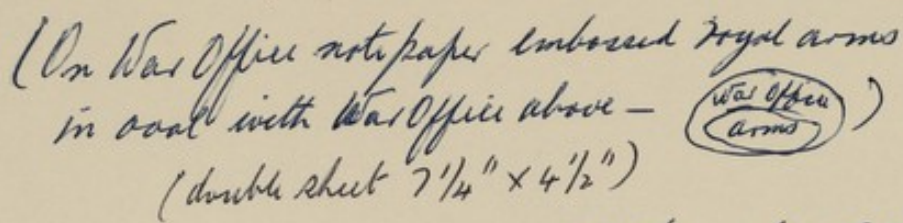 (On War Office notepaper embossed royal arms
in oval with War Office above – (War Office arms))
(double sheet 7 1/4" x 4 1/2")